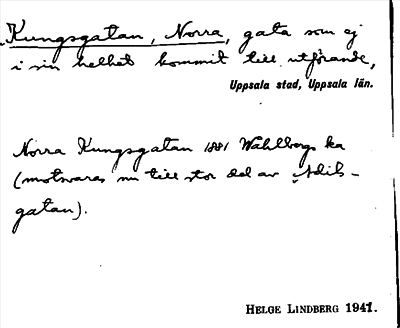 Kungsgatan, Norra, gata som ej
i sin helhet kommit till utförande,
Uppsala stad, Uppsala län.
Norra Kungsgatan 1881 Wahlbergs ka
(motsvaras nu till stor del av Adils-
gatan).
HELGE LINDBERG 1941.